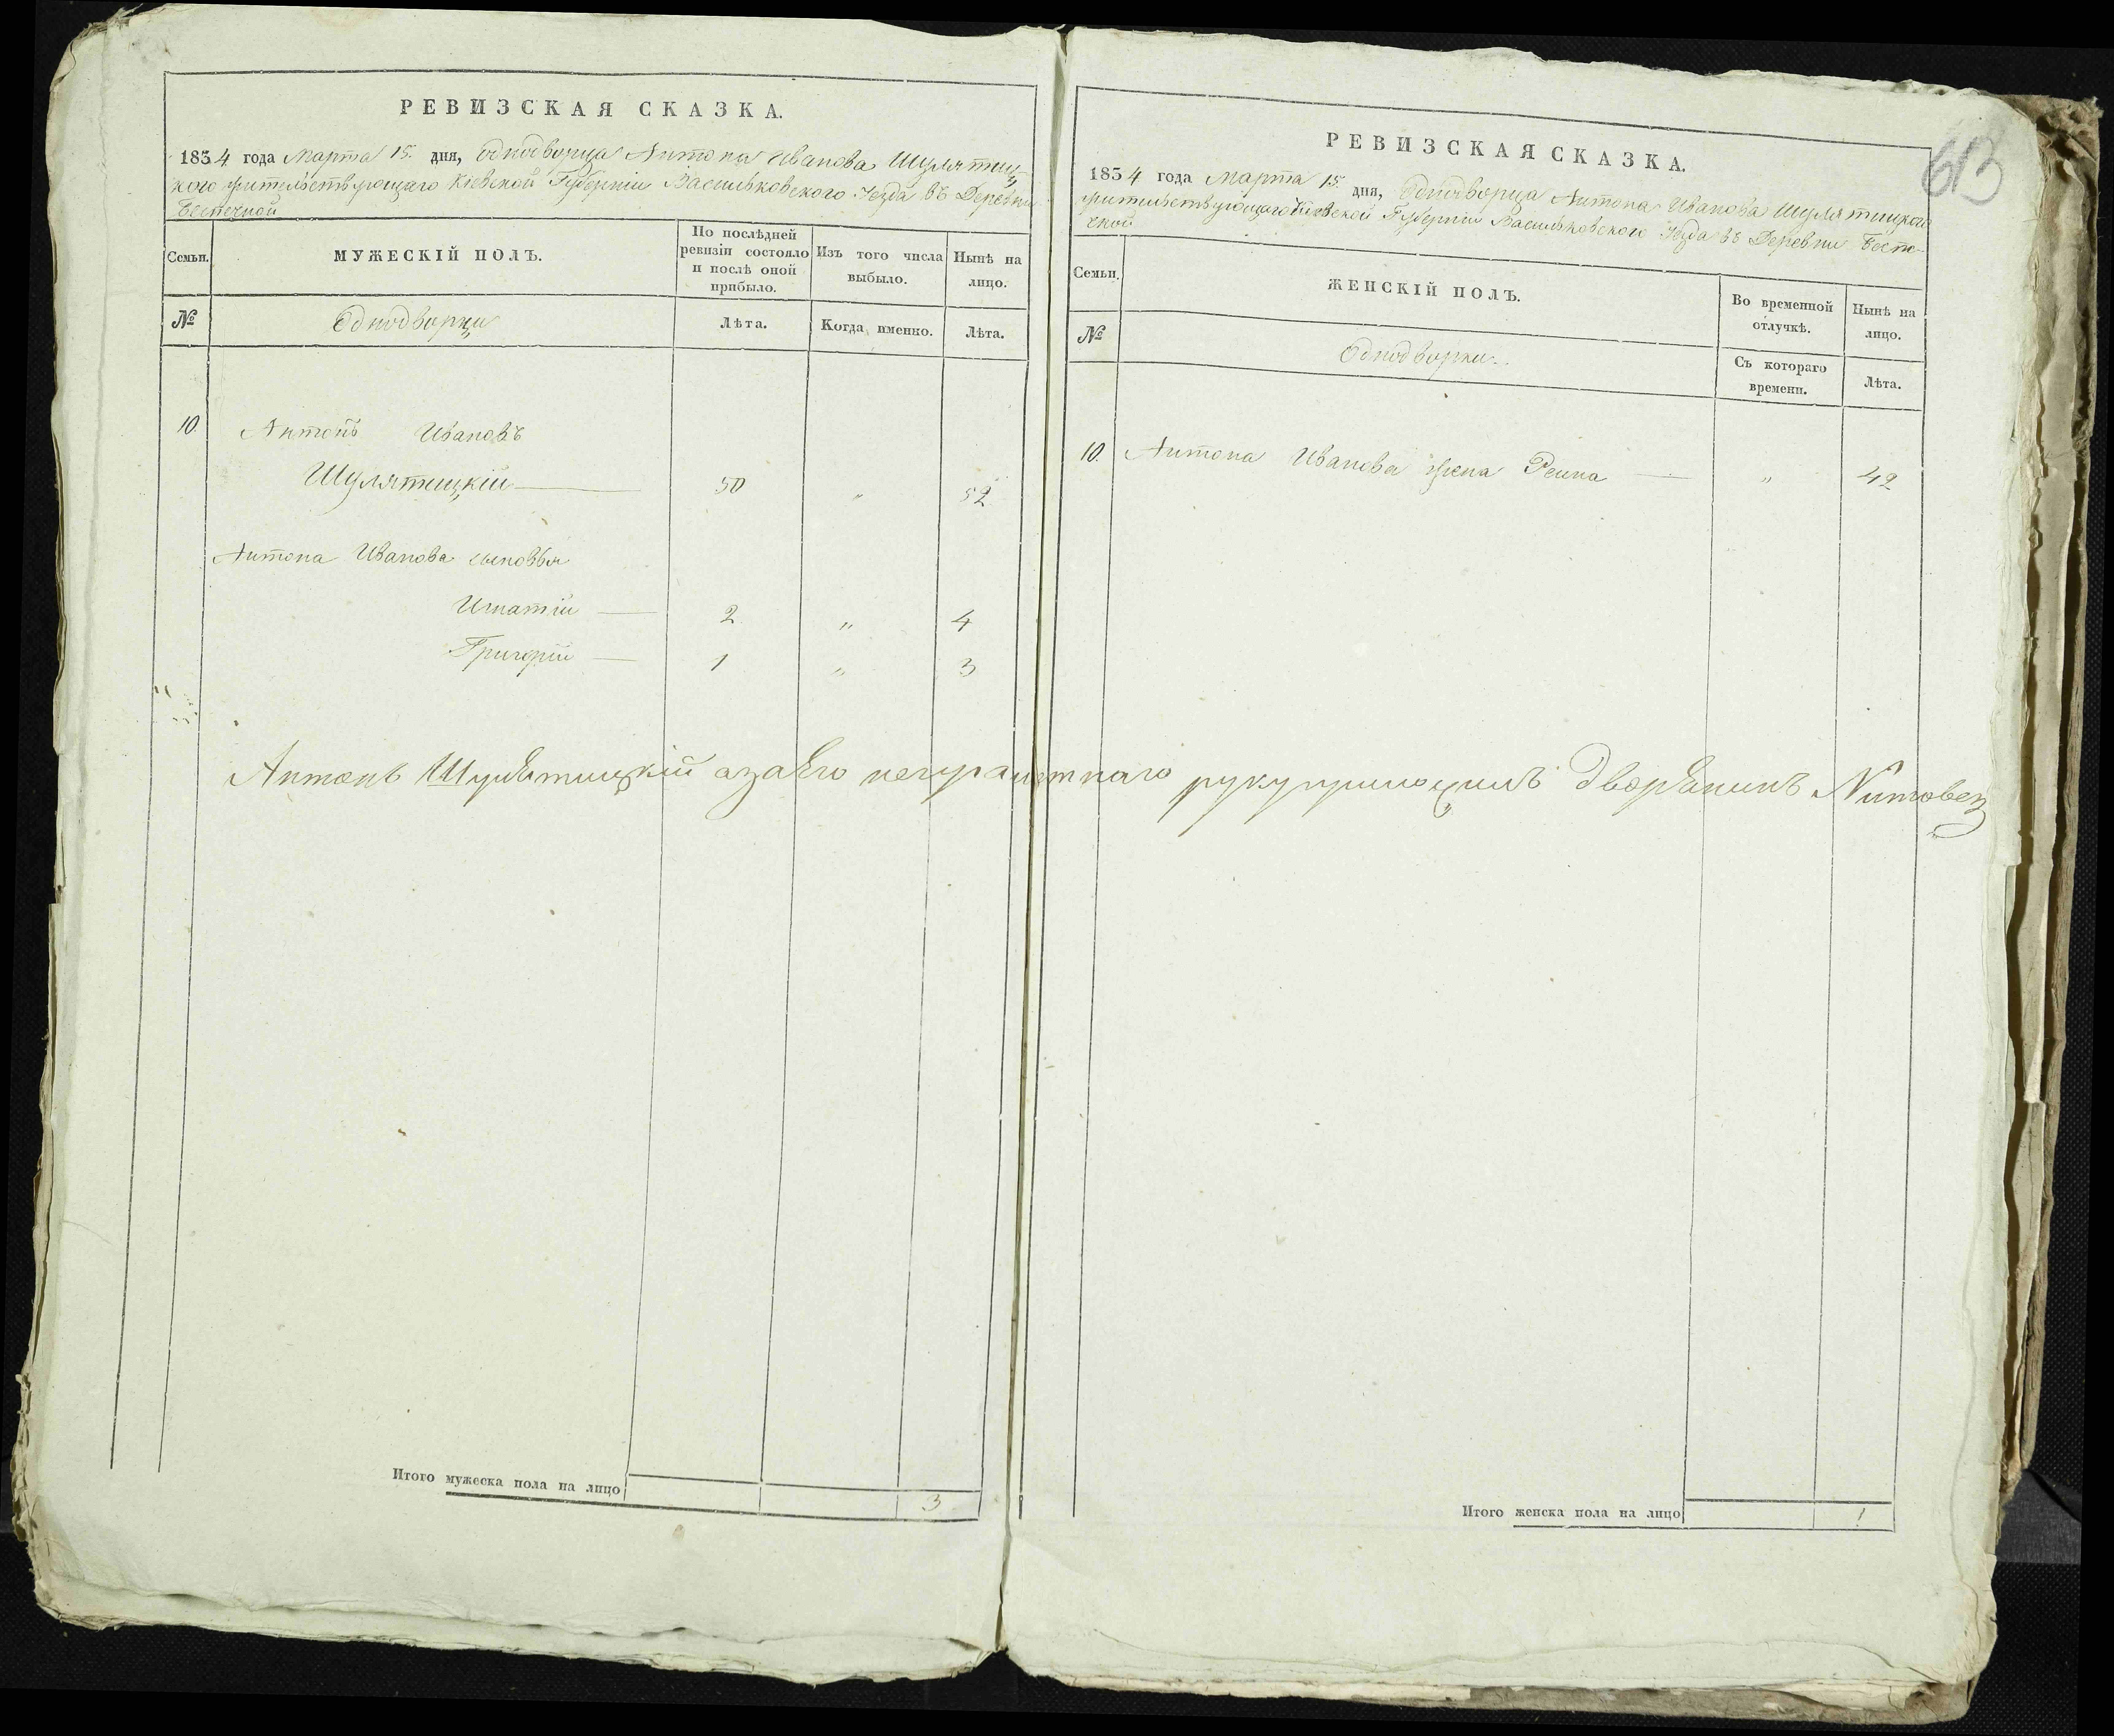 РЕВИЗСКАЯ СКАЗКА.
1834 года Марта 15. дня, Однодворца Антона Иванова Шулятиц-
кого жительствующаго Кіевской Губерніи Васильковского Уезда въ Деревни
Беспечной
Семьи.
МУЖЕСКІЙ ПОЛЪ.
По послѣдней
ревизіи состояло
и послѣ оной
прибыло.
Изъ того числа
выбыло.
Нынѣ на
лицо.
№
Однодворцы
Лѣта.
Когда именно.
Лѣта.
10. Антонъ Ивановъ
Шулятицкій — 50 " 52
Антона Иванова сыновья
Игнатій — 2 " 4
Григорій — 1 " 3
Антонъ Шулятицкій азаего неграмотнаго
Итого мужеска пола на лицо 3
613
РЕВИЗСКАЯ СКАЗКА.
1834 года Марта 15. дня, Однодворца Антона Иванова Шулятицкого
жительствующаго Кіевской Губерніи Васильковского Уезда въ Деревни Беспе-
чной
Семьи.
ЖЕНСКІЙ ПОЛЪ.
Во временной
отлучкѣ.
Нынѣ на
лицо.
№
Однодворки.
Съ котораго
времени.
Лѣта.
10. Антона Иванова жена Реина — " 42
руку приложилъ дворянинъ
Итого женска пола на лицо 1